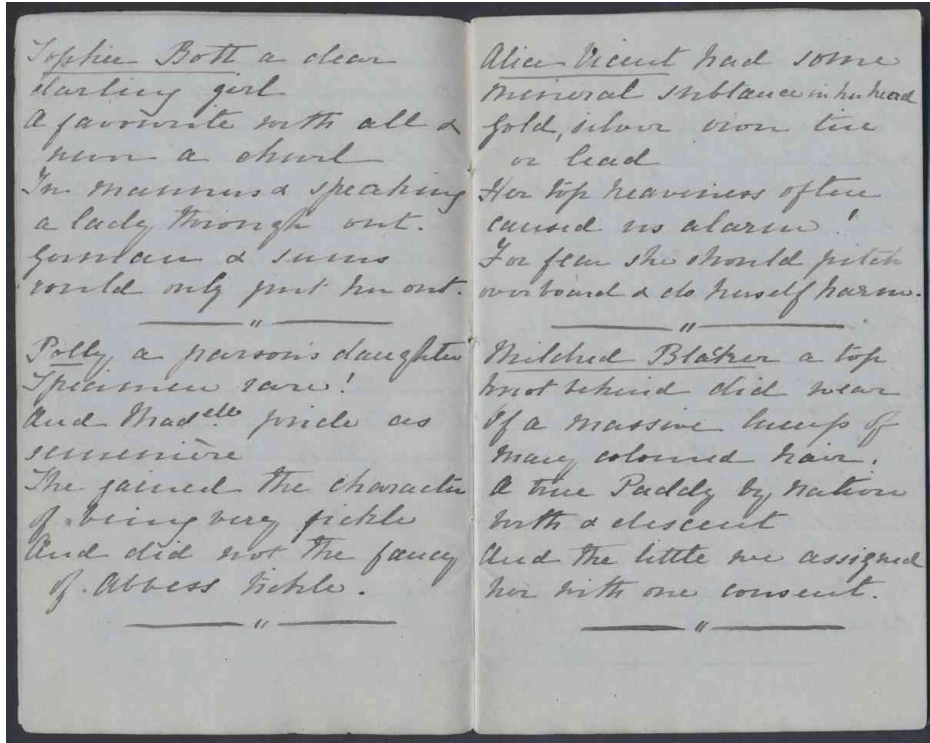 Sophie Bott a dear
darling girl
A favourite with all &
never a churl
In manners & speaking
a lady through out.
German & sums
would only put her out.
"
Polly, a parson's daughter
Specimen rare!
And Madelle pride as
She gained the character
of being very fickle
And did not the fancy
of Abbess tickle.
"
Alice Vicent had some
mineral substance in her head
Gold, silver iron tin
or lead
Her top heaviness often
caused us alarm!
For fear she should pitch
overboard & do herself harm.
"
Mildred Blaker a top
knot behind did wear
Of a massive lump of
many coloured hair.
A true Paddy by nation
birth & descent
And the little we assigned
her with one consent.
"